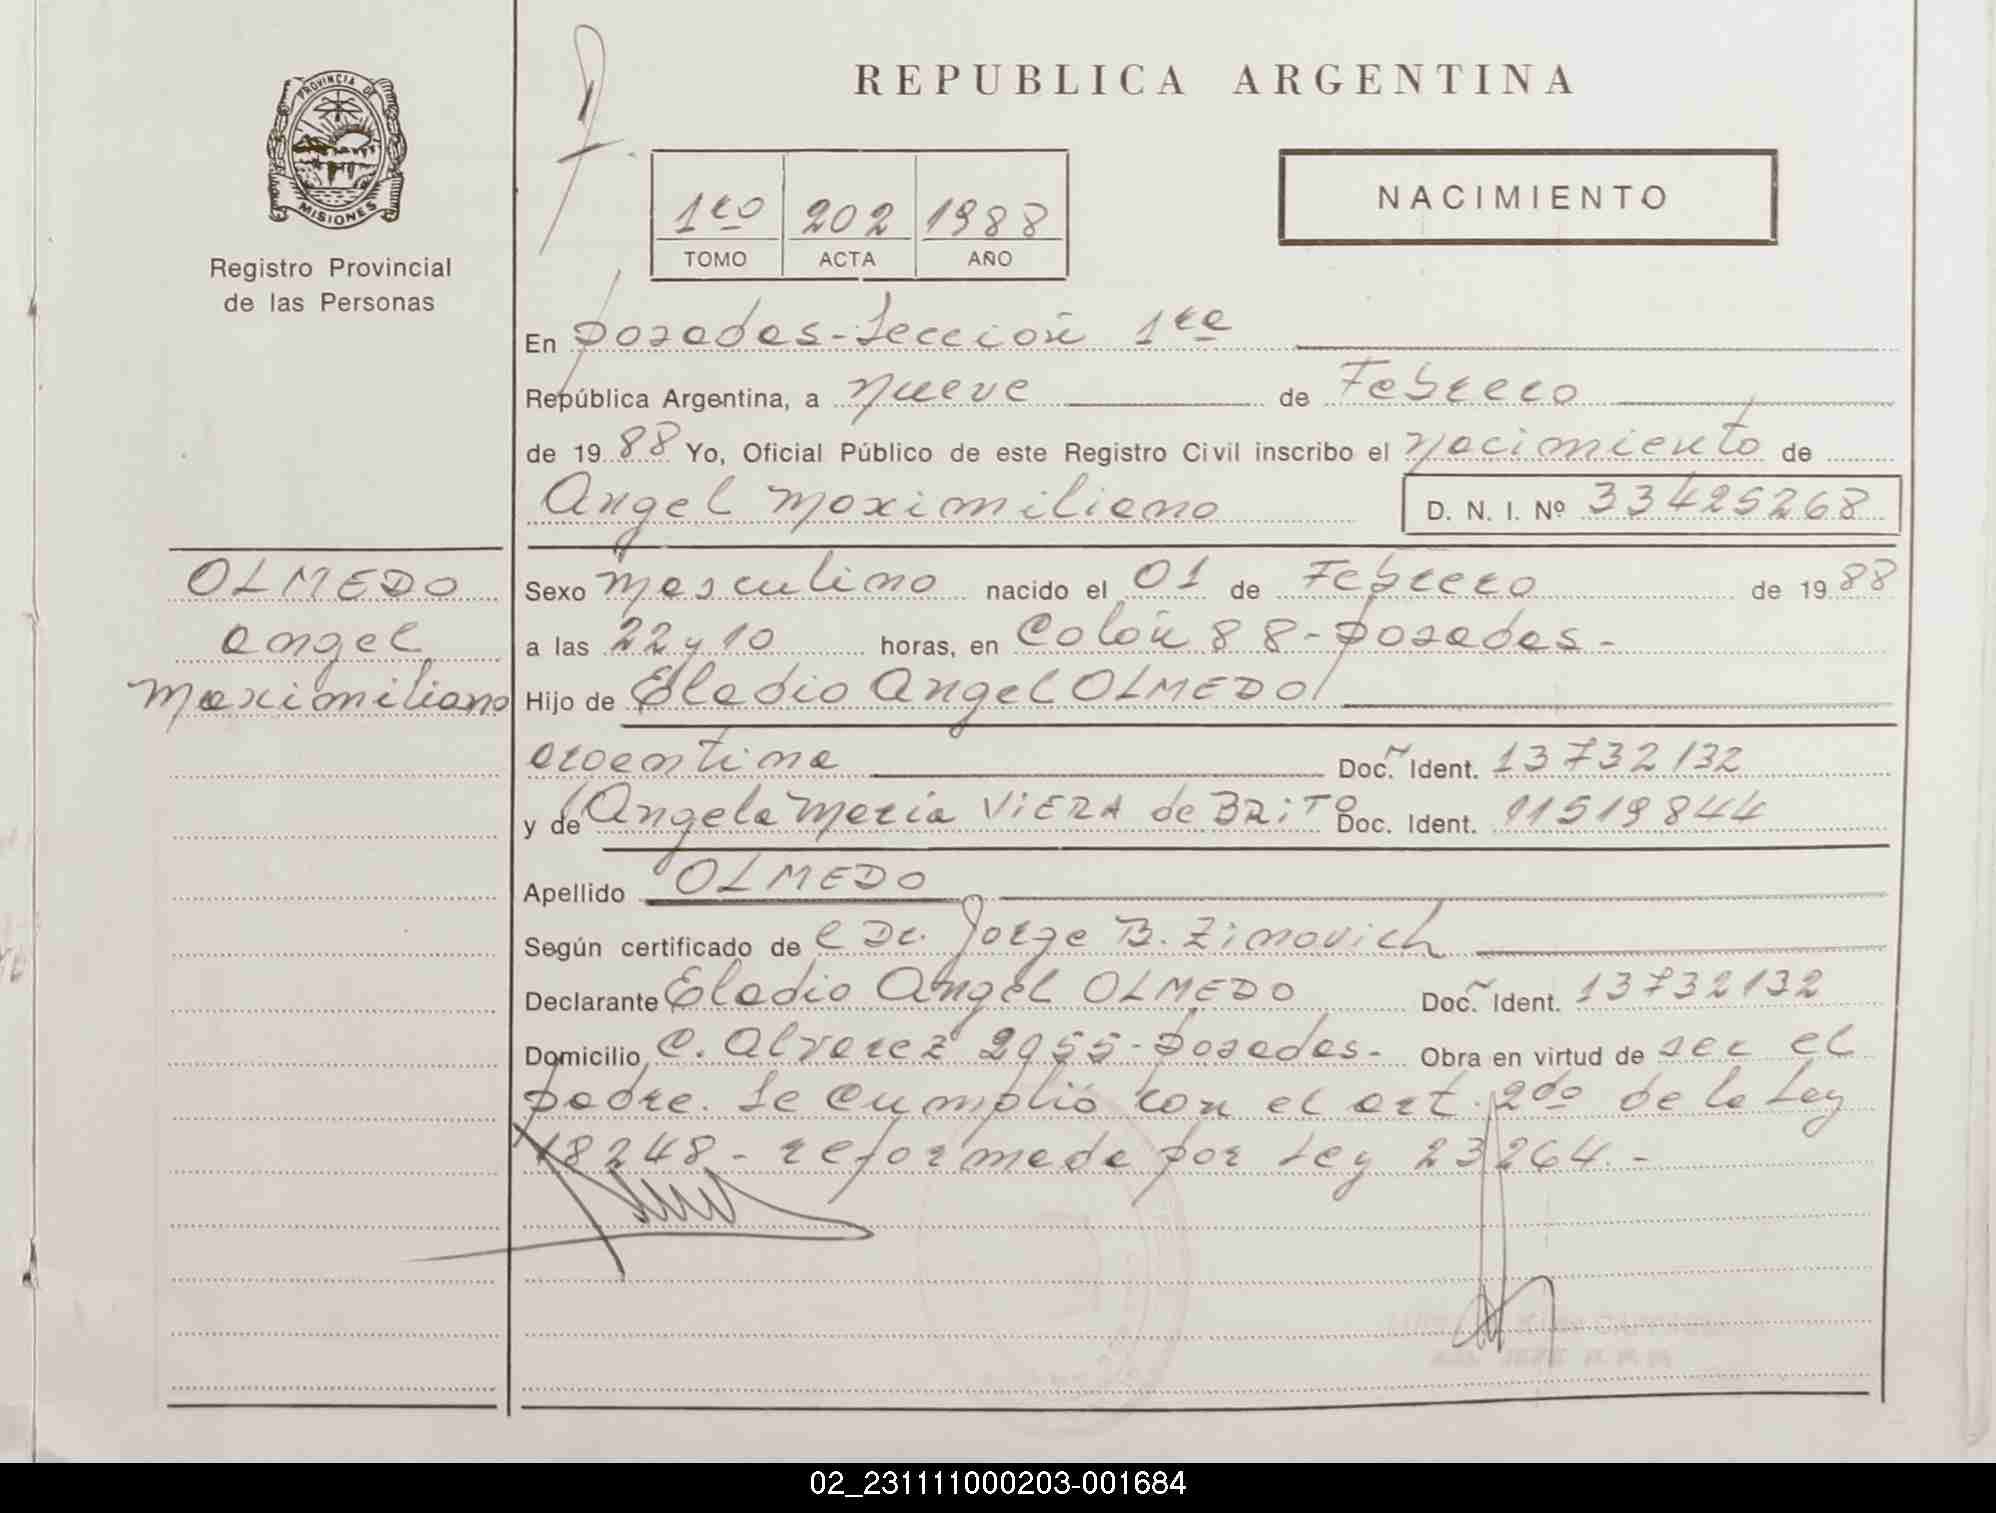 PROVINCIA DE
MISIONES
Registro Provincial
de las Personas
REPUBLICA ARGENTINA
NACIMIENTO
1ro 202 1988
TOMO ACTA AÑO
En Posadas-Sección 1ra
República Argentina, a nueve de Febrero
de 1988 Yo, Oficial Público de este Registro Civil inscribo el nacimiento de
Angel Maximiliano D. N. I. Nº 33425268
OLMEDO
Angel
Maximiliano
Sexo Masculino nacido el 01 de Febrero de 1988
a las 22 y 10 horas, en Colón 88-Posadas-
Hijo de Eladio Angel OLMEDO
argentina Doc. Ident. 13732132
y de Angela María VIERA de BRITO Doc. Ident. 11519844
Apellido OLMEDO
Según certificado de l Dr. Jorge B. Zinovich
Declarante Eladio Angel OLMEDO Doc. Ident. 13732132
Domicilio C. Alvarez 2955-Posadas- Obra en virtud de ser el
padre. Se cumplió con el art. 2do de la Ley
18248- reformada por Ley 23264.-
02_231111000203-001684